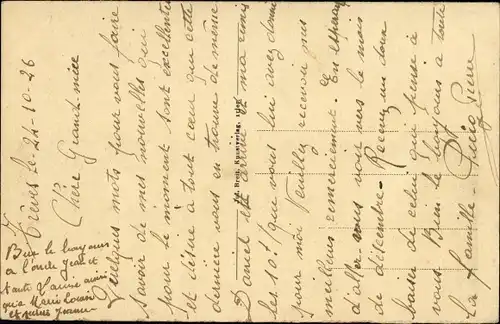 Trèves le 24-10-26
Chère Grand-mère
Quelques mots pour vous faire
savoir de mes nouvelles qui
pour le moment sont excellentes
et désire à tout cœur que cette
dernière vous en trouve de même
Daniel est arrivé et m'a remis
les 10f que vous lui avez donné
pour moi Veuillez recevoir mes
meilleurs remerciement. En espérant
d'aller vous voir vers le mois
de décembre. Recevez un doux
baiser de celui qui pense à
vous Bien le bonjour à toute
la famille.
Bien le bonjour
à l'oncle Jean et
tante J'anne ainsi
qu'a Marie Louise
et
Kunstverlag.